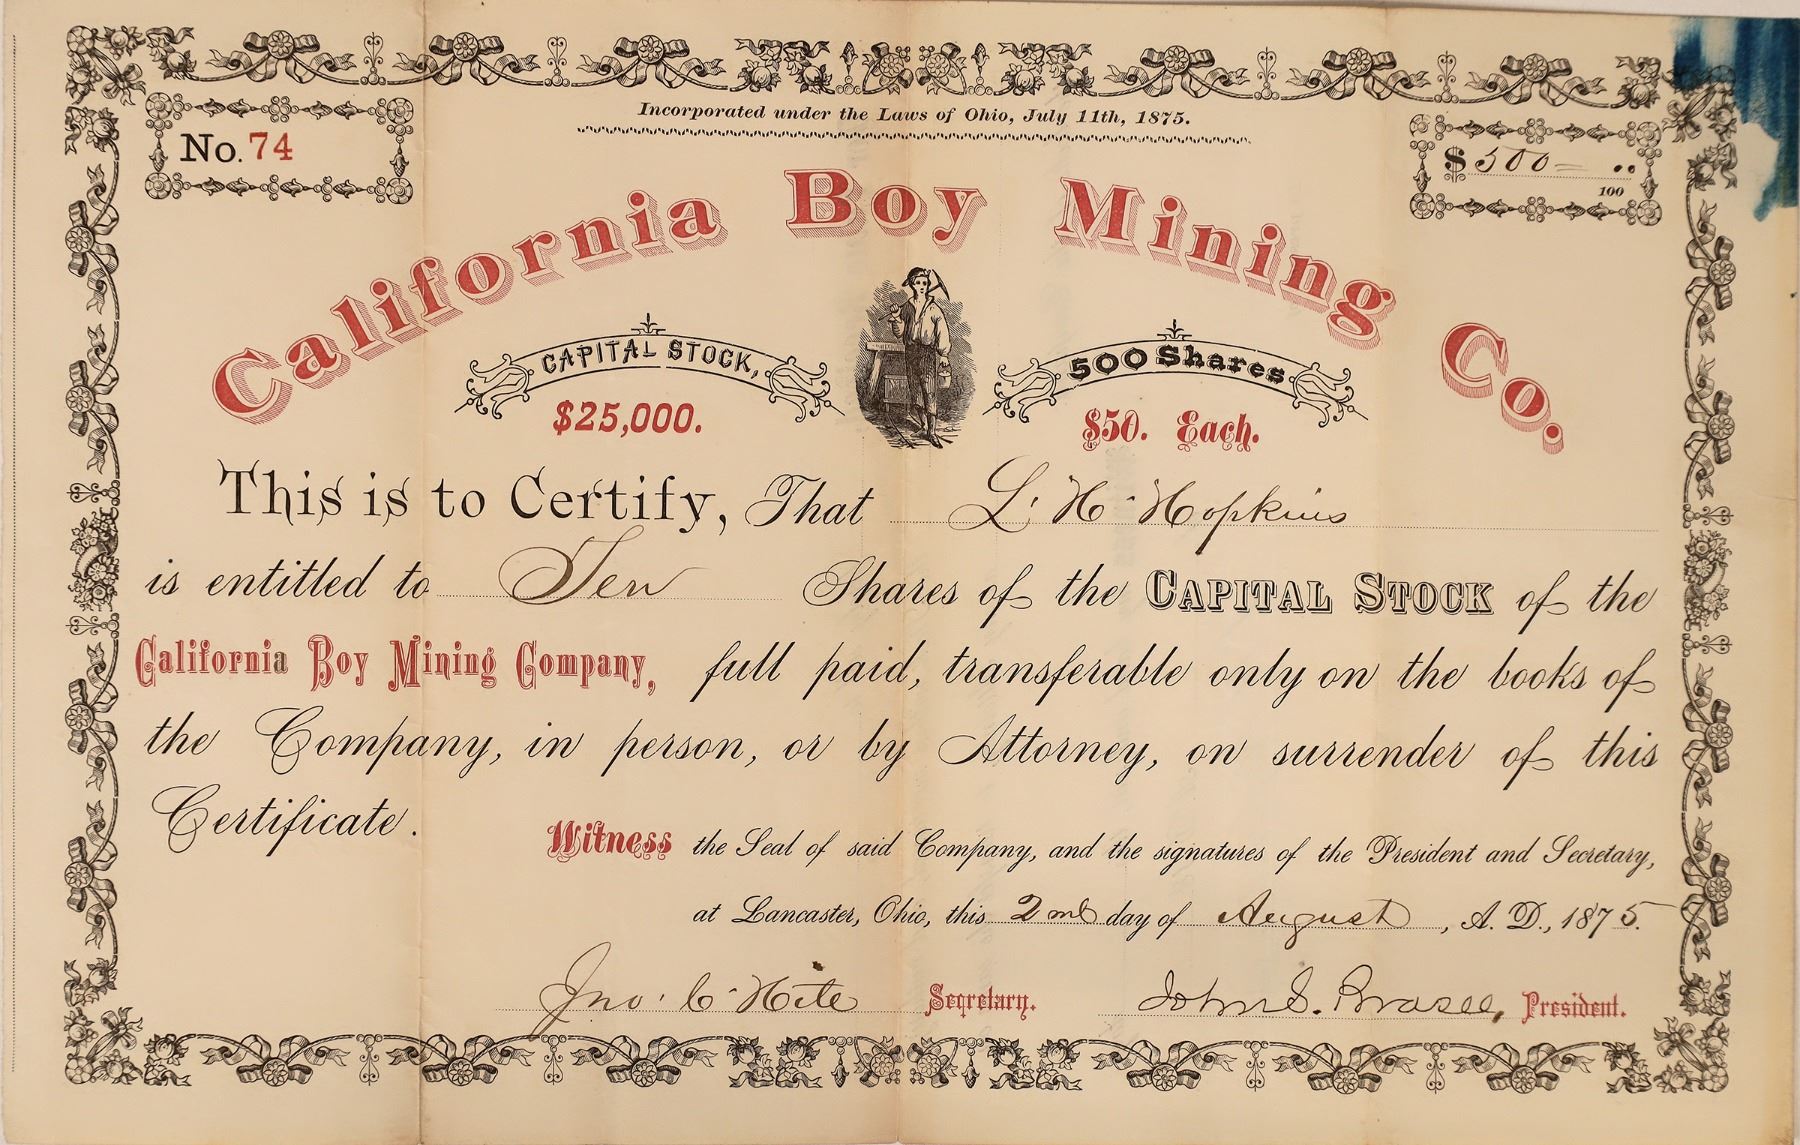 Incorporated under the Laws of Ohio, July 11th, 1875.
No. 74
$ 500= ..
100
California Boy Mining Co.
CAPITAL STOCK,
500 Shares
$25,000.
$50. Each.
This is to Certify, That L. H. Hopkins
is entitled to Ten Shares of the CAPITAL STOCK of the
California Boy Mining Company, full paid, transferable only on the books of
the Company, in person, or by Attorney, on surrender of this
Certificate.
Witness the Seal of said Company, and the signatures of the President and Secretary,
at Lancaster, Ohio, this 2nd day of August, A. D., 1875.
Jno. C. Hite Secretary. John S. Brasee, President.